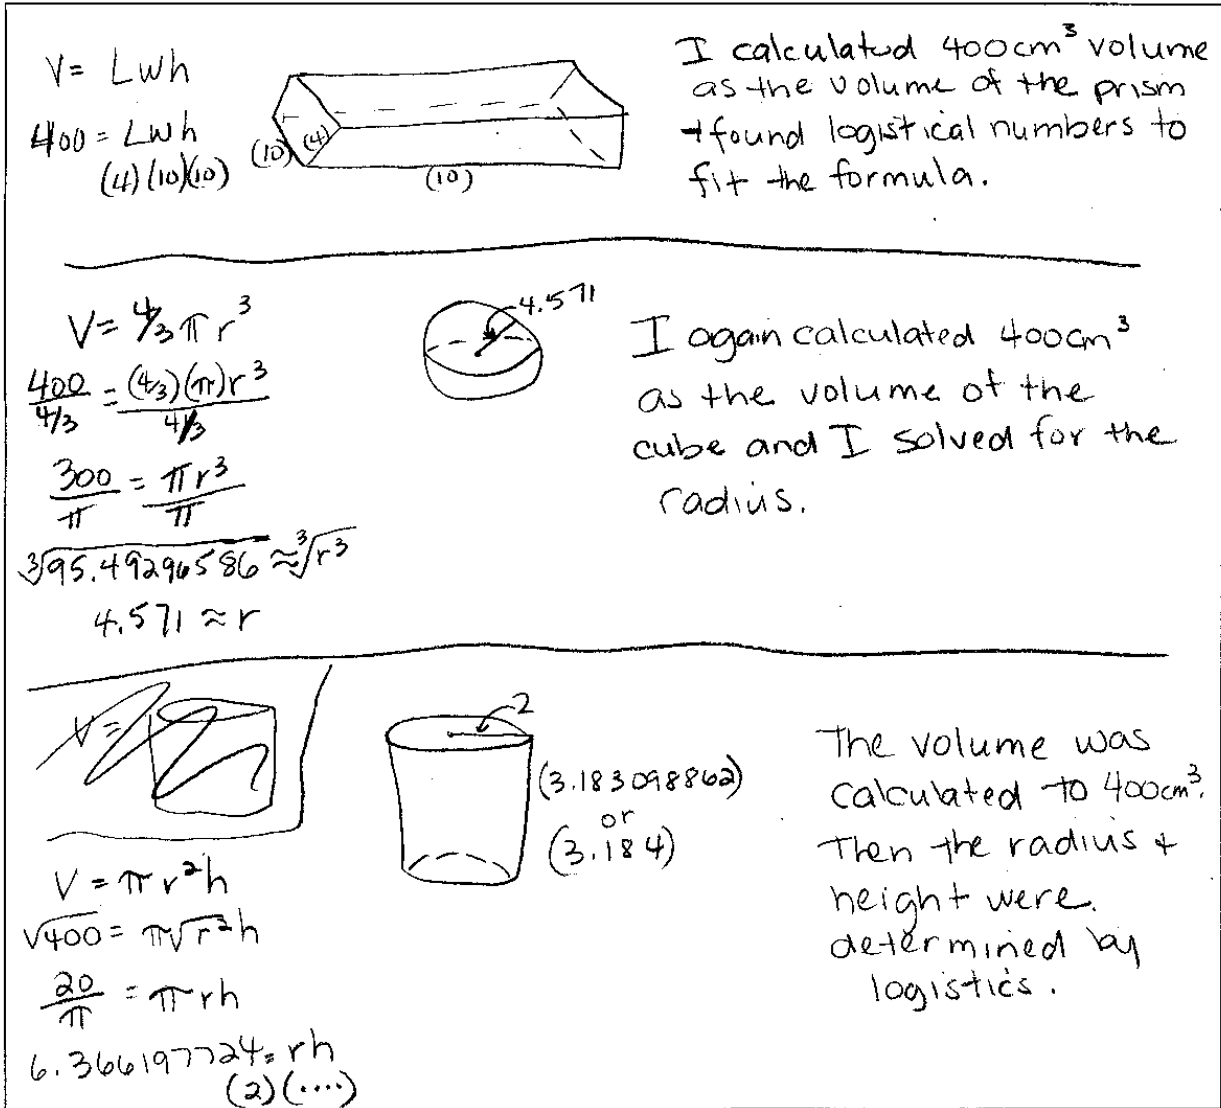 V = Lwh
400 = Lwh
(4)(10)(10)
(10) (4)
(10)
I calculated 400cm³ volume
as the volume of the prism
+ found logistical numbers to
fit the formula.
V = 4/3 π r³
400/4/3 = (4/3)(π)r³/4/3
300/π = πr³/π
³√95.49296586 ≈ ³√r³
4.571 ≈ r
4.571
I again calculated 400cm³
as the volume of the
cube and I solved for the
radius.
V=
V = π r²h
√400 = π√r²h
20/π = π rh
6.366197724 = rh
(2)(....)
2
(3.183098862)
or
(3.184)
The volume was
calculated to 400cm³.
Then the radius +
height were.
determined by
logistics.